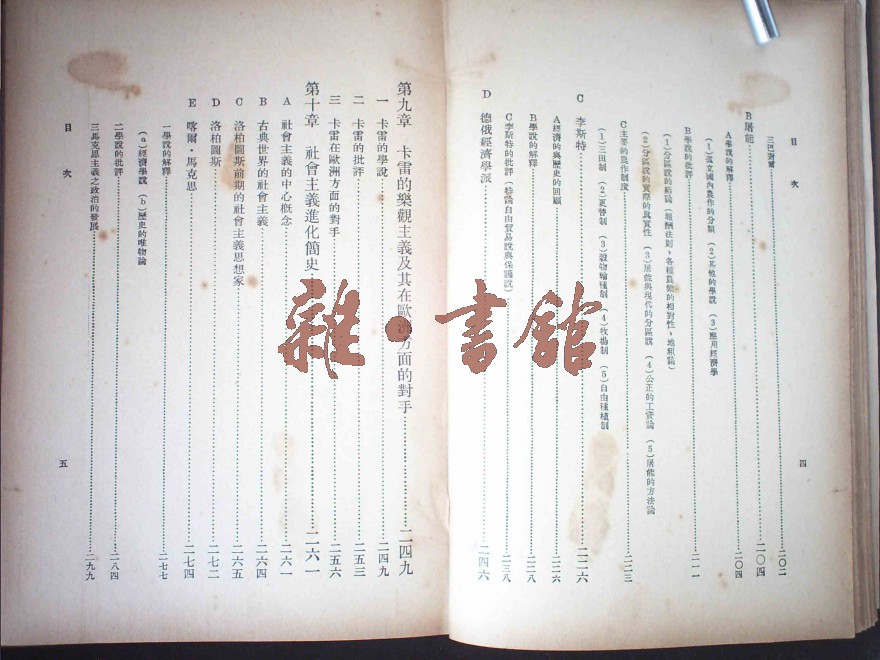 目次
四
三巴對爾……二〇二
B屠能……二〇四
A學說的解釋……二〇四
(1)孤立國內農作的分類 (2)其他的學說 (3)應用經濟學
B學說的批評……二一一
(1)分區說的結論(報酬法則、各種農業的相對性、地租論)
(2)分區說的實際的真實性 (3)屠能與現代的分區說 (4)公正的工資論 (5)屠能的方法論
C主要的農作制度……二二三
(1)三田制 (2)更替制 (3)穀物輪種制 (4)牧場制 (5)自由種植制
C 李斯特……二二六
A經濟的與歷史的回顧……二二六
B學說的解釋……二二八
C李斯特的批評(特論自由貿易說與保護說)……二三八
D 德俄經濟學派……二四六
第九章 卡雷的樂觀主義及其在歐洲方面的對手……二四九
一 卡雷的學說……二四九
二 卡雷的批評……二五三
三 卡雷在歐洲方面的對手……二五六
第十章 社會主義進化簡史……二六一
A 社會主義的中心概念……二六一
B 古典世界的社會主義……二六四
C 洛柏圖斯前期的社會主義思想家……二六五
D 洛柏圖斯……二七二
E 喀爾·馬克思……二七四
一學說的解釋……二七七
(a)經濟學說 (b)歷史的唯物論
二學說的批評……二八四
三馬克思主義之政治的發展……二九九
目次
五
雜·書館